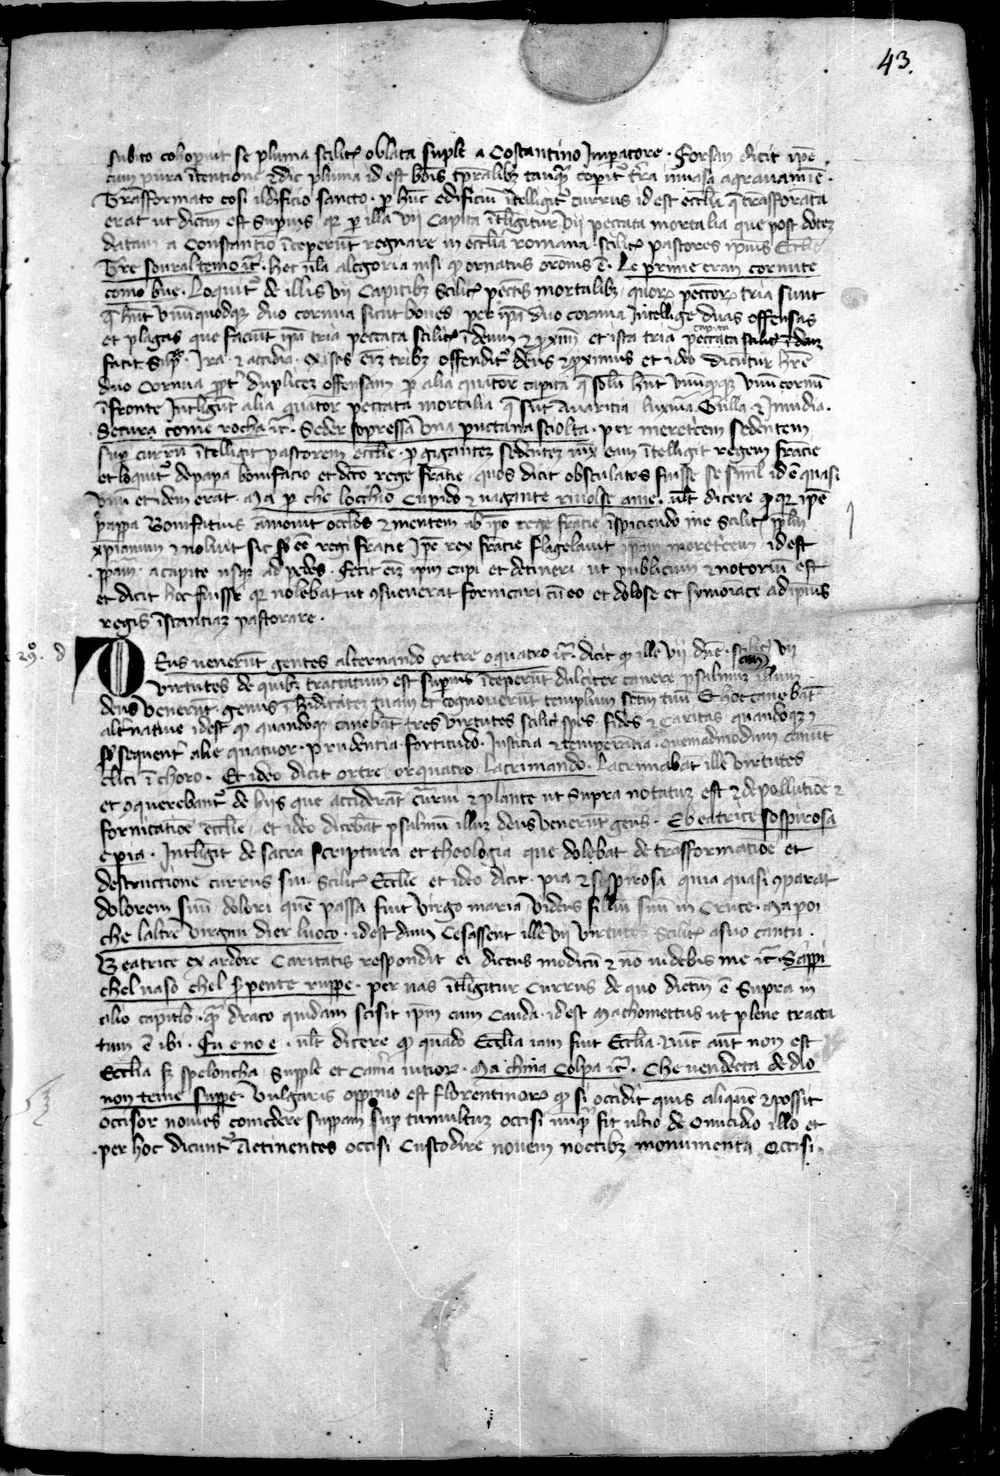 43.
subito cohoperuit se pluma scilicet oblata suple a Costantino Imperatore. Forsan dicit ipse
cum pura intentione. Adhuc pluma id est bonis temporalibus tanquam coperitur terra invasa a gravamine.
Trasformato cosi il dificio sancto. per hunc edificium intelligitur currus id est ecclesia que trasformata
erat ut dictum est superius. quia per illa vii capita intelligitur vii peccata mortalia que post dotem
datam a Constantio inceperunt regnare in ecclesia romana scilicet pastores ipsius Ecclesie
Tre soural temo etc. hec nulla alegoria nisi quod ornatus sermonis est. Le prime eran cornute
como bue. Loquitur de illis vii Capitibus scilicet peccatis mortalibus, quorum peccatorum tria sunt
que habent unumquodque duo cornua sicut boues. per ipsa duo cornua Intellige duas offensas
et plagas que faciunt ipsa tria peccata scilicet in deum et proximum et ista tria peccata capita scilicet in deum
facit superbia. Ira. et accidia. ex istis enim tribus offenditur deus et proximus et ideo dicuntur habere
duo Cornua propter duplicem offensam per alia quatuor capita que solum habent unumquodque unum cornu
in fronte Intelligunt alia quatuor peccata mortalia que sunt Auaritia luxuria Gulla et Inuidia.
Secura come rocha etc. Seder sopressa una puctana sciolta. per meretricem sedentem
super currum intelligit pastorem ecclesie. per gigantem sedentem iuxta eam intelligit regem francie
et loquitur de papa bonifacio et dicto rege francie, quos dicit obsculatos fuisse se simul id est quasi
unum et idem erat. Ma per che locchio Cupido et uagante riuolse ame. uult dicere quod quia ipse
pappa Bonifatius amouit occlos et mentem ab ipso rege francie inspiciendo me scilicet populum
christianum et noluit sic subesse regi francie Ipse rex francie flagelauit ipsam meretricem id est
papam. a capite usque ad pedes. fecit enim ipsum capi et detineri ut publicum et notorium est
et dicit hoc fuisse quia nolebat ut consueuerat fornicari cum eo et dolose et symoniace ad ipsius
regis instantiam pastorare.
29°. d
Deus uenerunt gentes alternando ortre oquatro etc. dicit quod ille vii domine. scilicet vii
virtutes de quibus tractatum est superius inceperunt dulciter canere psalmum illum
deus venerunt gentes in hereditatem tuam et coinquinauerunt templum sanctum tuum Et hoc canebant
alternatiue id est quod quandoque canebant tres virtutes scilicet spes fides et caritas quandoque
subsequenter alie quatuor. prudentia fortitudo. Justicia et temperantia. quemadmodum canunt
clerici in choro. Et ideo dicit ortre, orquatro, lacrimando. Lacrimabat ille virtutes
et conquerebantur de hiis que acciderant currui et plante ut supra notatum est et de pollutione et
fornicatione ecclesie, et ideo dicebant psalmum illum deus venerunt gentes. E beatrice sospirosa
e pia. Intelligit de sacra scriptura et theologia que dolebat de trasformatione et
destructione currus sui scilicet Ecclesie et ideo dicit. pia et suspirosa quia quasi comparat
dolorem suum dolori quem passa fuit virgo maria videns fillium suum in Cruce. Ma poi
che laltre virgini dier luoco. id est dum Cesassent ille vii virtutes scilicet a suo cantu.
Beatrice ex ardore Caritatis respondit ei dicens modicum et non videbis me etc. Sappi
chel uaso chel serpente ruppe. per uas intelligitur Currus de quo dictum est supra in
alio capitulo. quem draco quidam scisit ipsum cum Cauda. id est Machomettus ut plene tracta
tum est ibi. Fu e no e. uult dicere quod quando Ecclesia iam fuit Ecclesia. Nunc autem non est
Ecclesia sed speloncha, Supple et Ma chi na Colpa etc. Che uendecta de dio
non teme suppe. Vulgaris oppinio est florentinorum quod si occidit quis aliquem et possit
occisor nouies comedere suppam super tumultum occisi nunquam fit ultio de omicidio illo et
per hoc dicuntur Actinentes occisi Custodire nouem noctibus monumenta Occisi.